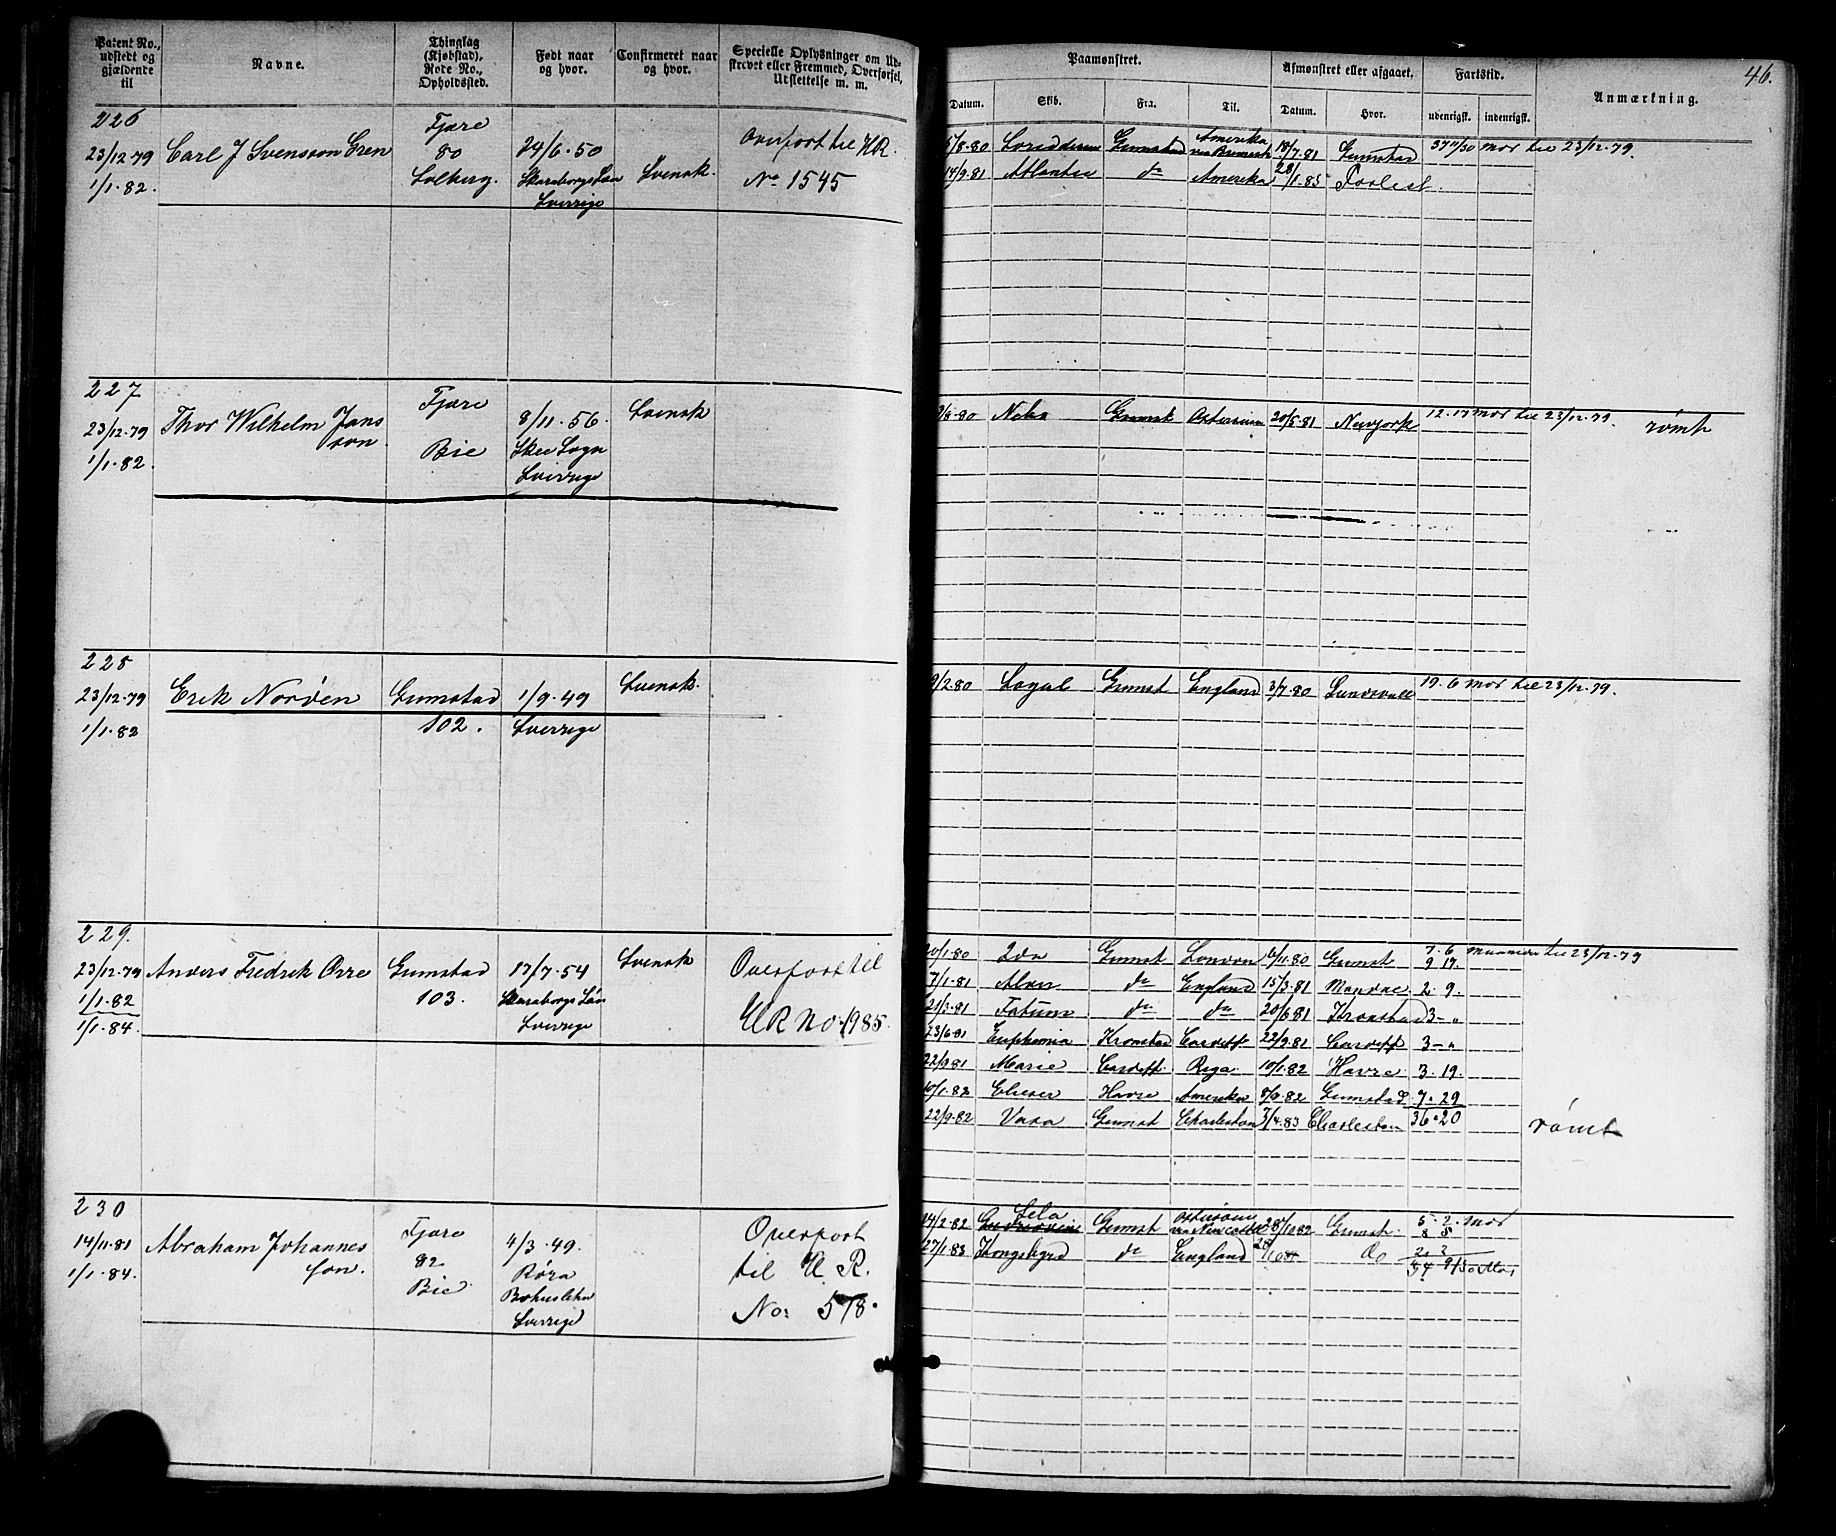 Patent No., udstedt og gjældende til
Navne.
Thinglag (Kjøbstad), Rode No., Opholdssted.
Født naar og hvor.
Confirmeret naar og hvor.
Specielle Oplysninger om Udskrevet eller Fremmed, Overførsel, Udslettelse m. m.
Paamønstret.
Datum.
Skib.
Fra.
Til.
Afmønstret eller afgaaet.
Datum.
Hvor.
Fartstid.
udenrigsk.
indenrigsk.
Anmærkning.
46.
226
23/12-79
1/1-82.
Carl J Svensson Gren
Fjære
80
Solberg.
24/6-50
Skaraborgs Län
Sverrige
Svensk.
Overført til HR.
No 1545
5/8-80 Grimstad Amerika 18/7-81 Grimstad 37 11/30 mdr til 23/12-79.
14/9-81 Atlantic do Amerika 28/1-85
227
23/12-79
1/1-82.
Thor Wilhelm Jans
son
Fjære
Bie
8/11-56
Skee Sogn
Sverrige
Svensk
Grimst 20/5-81 Newyork 12-17 mdr til 23/12-79. rømt
228
23/12-79
1/1-82
Erik Nordén
Grimstad
102.
1/9-49
Sverrige
Svensk.
9/2-80 Loyal Grimst England 3/7-80 Sundsvall 19-6 mdr til 23/12-79.
229.
23/12-79
1/1-82
1/1-84.
Anders Fredrik Orre
Grimstad
103.
17/7-54
Skaraborgs Län
Sverrige
Svensk
Overført til
HR No. 1985.
20/1-80 Ida Grimst London 6/11-80 Grimst 7-6 maaneder til 23/12-79
9 17.
7/1-81 do England 15/3-81 Mandal 2-9.
21/3-81 Fatum do do 20/6-81 Kronstad 3-"
23/6-81 Euphemia Kronstad Cardiff 22/9-81 Cardiff 3-"
22/9-81 Marie Cardiff Riga 10/1-82 Havre 3-19.
10/1-82 Elieser Havre Amerika 8/9-82 Grimstad 7-29
22/9-82 Vasa Grimst Charleston 7/4-83 Charleston 36-20 rømt
230
14/11-81
1/1-84.
Abraham Johannes
son.
Fjære
82
Bie
4/3-49.
Röra
Bohuslehn
Sverrige
Overført
til H. R.
No: 578.
24/2-82 Grimst 28/10-82 Grimst. 5-2 mdr
8 8
27/1-83 Kongsbyrd do England do